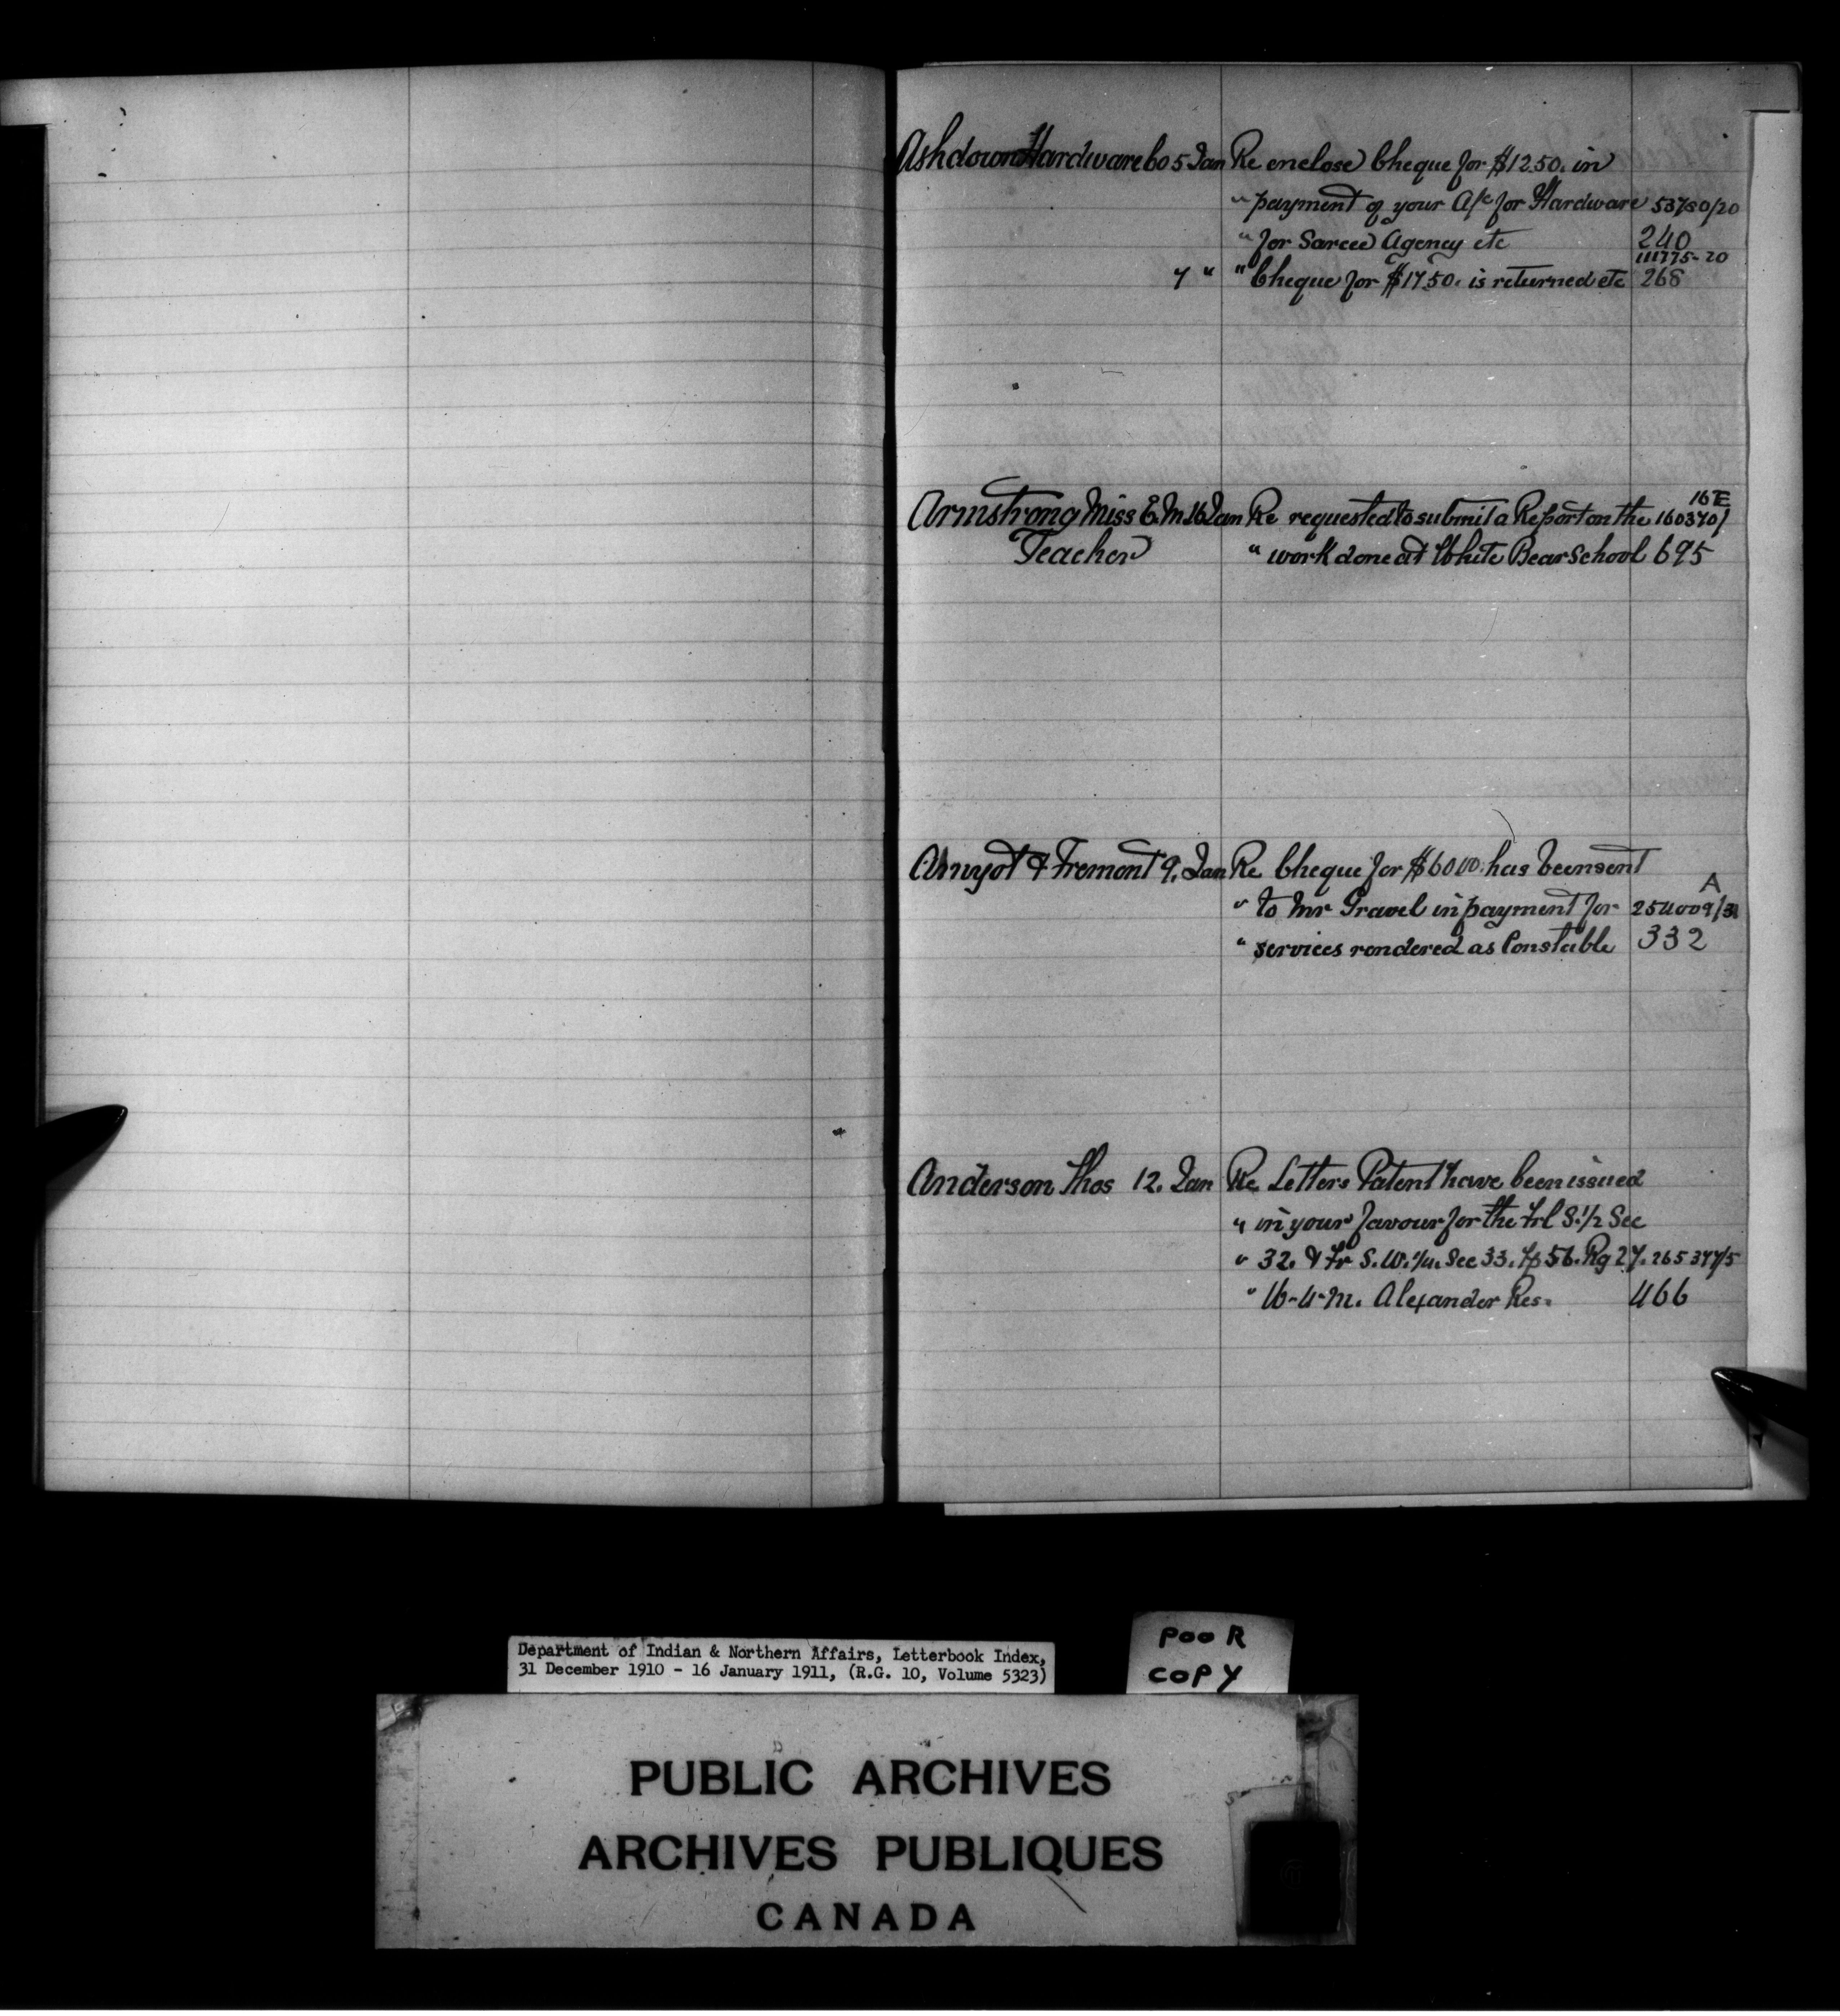 Ashdown Hardware Co 5 Jan Re enclose Cheque for $12.50. in
" payment of your A/c for Hardware 53780/20
" for Sarcee Agency etc 240
111775-20
7 " " Cheque for $17.50. is returned etc 268
16E
Armstrong Miss E. M. 16 Jan Re requested to submit a Report on the 160370/
Teacher " work done at White Bear School 695
Amyot & Fremont 9. Jan Re Cheque for $60.00. has been sent
A
" to Mr Gravel in payment for 254009/3
" services rendered as Constable 332
Anderson Thos 12. Jan Re Letters Patent have been issued
" in your favour for the Frl S. 1/2 Sec
" 32. & Fr S. W. 1/4. Sec 33. Tp 56. Rg 27. 265377/5
" W-4-M. Alexander Res. 466
Department of Indian & Northern Affairs, Letterbook Index,
31 December 1910 - 16 January 1911, (R.G. 10, Volume 5323)
POOR
COPY
PUBLIC ARCHIVES
ARCHIVES PUBLIQUES
CANADA